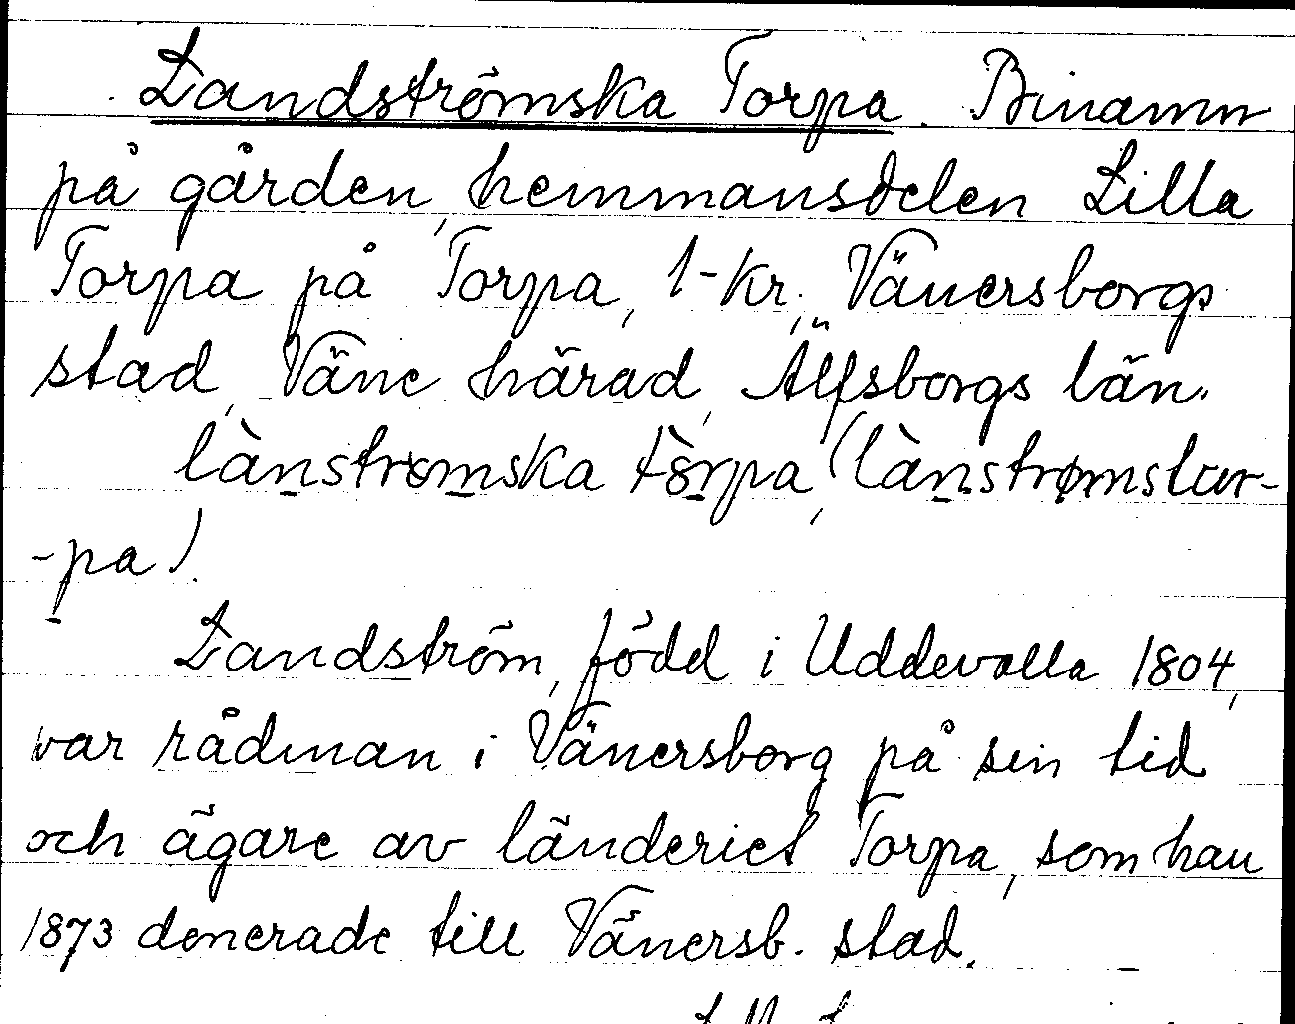 Landströmska Torpa. Binamn
på gården, hemmansdelen Lilla
Torpa på Torpa, 1-kr., Vänersborgs
stad, Väne härad, Älfsborgs län.
lànstromska tòrpa, (lànstrømstar-
-pa).
Landström, född i Uddevalla 1804,
var rådman i Vänersborg på sin tid
och ägare av länderiet Torpa, som han
1873 donerade till Vänersb. stad.